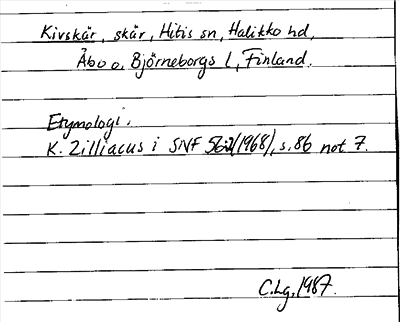 Kivskär, skär, Hitis sn, Halikko hd,
Åbo o. Björneborgs l, Finland.
Etymologi.
K. Zilliacus i SNF 56:2(1968), s. 86 not 7.
C.Lg. 1987.